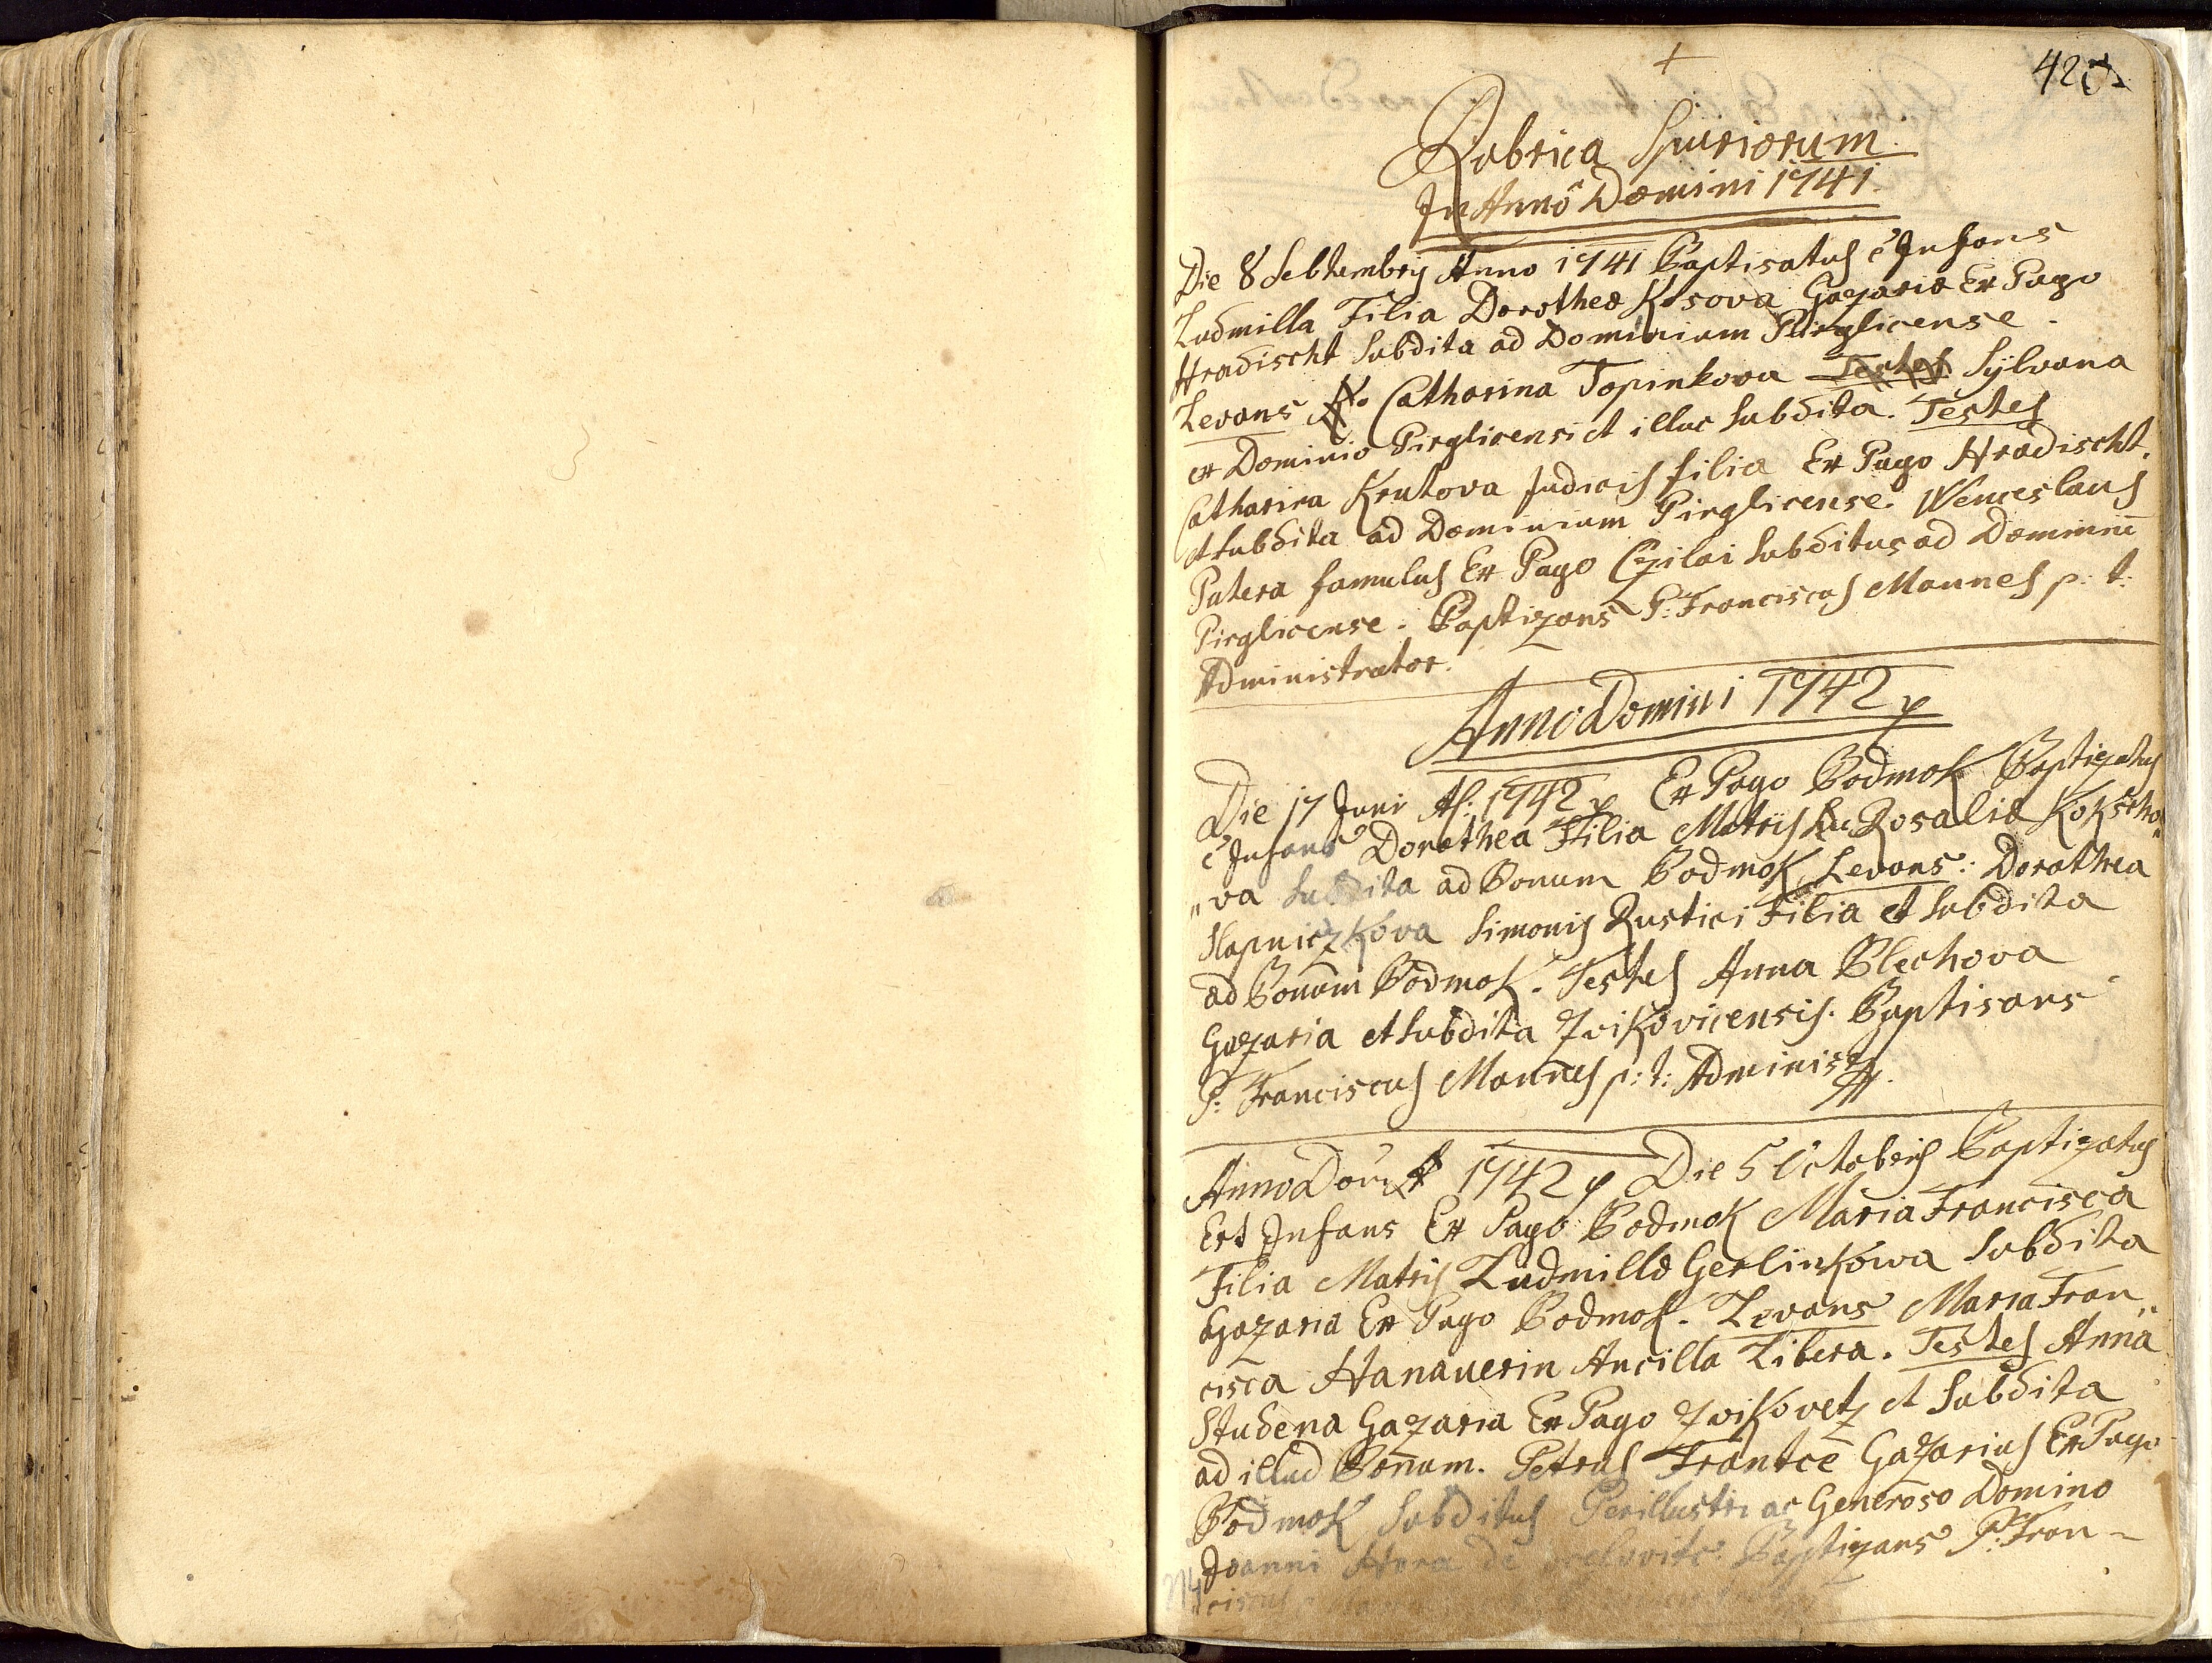 +
Rubrica Spuriorum
In Anno Domini 1741
Die 8 Sebtembris Anno 1741 Baptisatus ē Infans
Ludmilla Filia Dorotheæ Kosova Gazariæ Ex Pago
Hradischt Subdita ad Dominium Pirglicense.
Levans Catharina Topinkova Testes Sÿlvana
ex Dominio Pirglicensi et illuc Subdita. Testes
Catharina Krutova Judicis filia Ex Pago Hradischt.
et Subdita ad Dominium Pirglicense. Wenceslaus
Putera famulus Ex Pago Czilai Subditus ad Dominiū
Pirglicense. Baptizans P: Franciscus Mannes p: t:
Administrator.
Anno Domini 1742
Die 17 Juni A: 1742 Ex Pago Podmok Baptizatus
ē Infans Dorothea Filia Matris Rosaliæ Kokscho„
„va Subdita ad Bonum Podmok, Levans: Dorothea
Slapniczkova Simonis Rustici Filia et Subdita
ad Bonum Podmok. Testes Anna Blechova
Gazaria et Subdita Zvikovicensis. Baptisans
P: Franciscus Mannes p: t: Administr.
Anno Domi 1742 Die 5 Octobris Baptizatus
Est Infans Ex Pago Podmok Maria Francisca
Filia Matris Ludmillæ Gerlinkowa Subdita
Gazaria Ex Pago Podmok. Levans Maria Fran„
cisca Hanauerin Ancilla Libera. Testes Anna
Studena Gazaria Ex Pago Zvikovetz et Subdita
ad illud Bonum. Petrus Frantce Gazarius Ex Pago
Podmok Subditus Perillustri ac Generoso Domino
Joanni Hora de Baptizans P: Fran-
ciscus